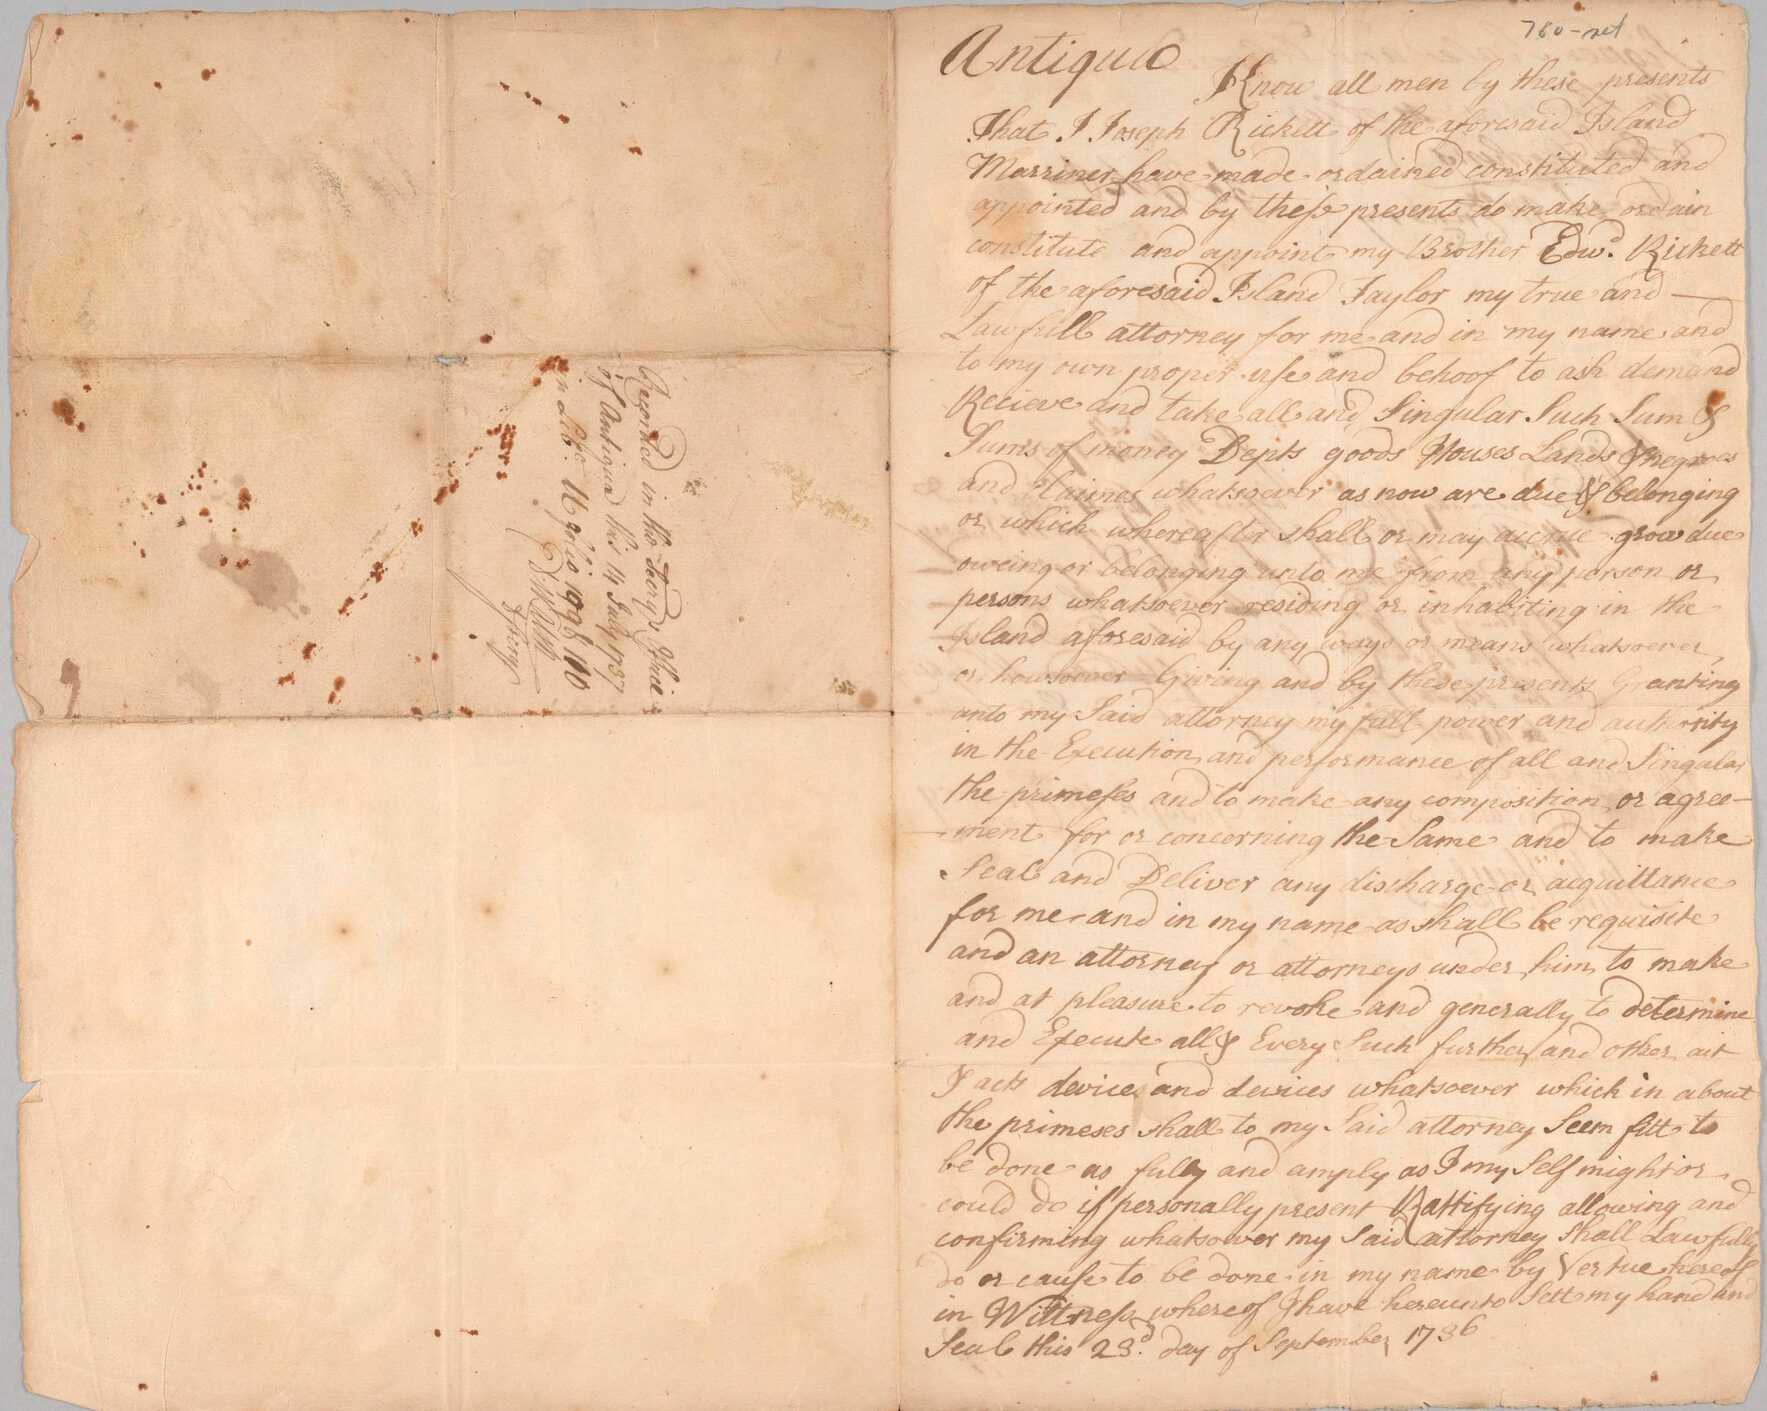 Recorded in the Secrys. Office
of Antigua this 14 July 1737
in Lib:
760 - net
Antigua
Know all men by these presents
That I Joseph Rickett of the aforesaid Island
Marriner have made ordained constituted and
appointed and by these presents do make ordain
constitute and appoint my Brother Edwd. Rickett
of the aforesaid Island Taylor my true and
Lawfull attorney for me and in my name and
to my own proper use and behoof to ask demand
Recieve and take all and Singular Such Sum &
Sums of money Depts goods Houses Lands & negroes
and Claimes whatsoever as now are due & belonging
or which whereafter shall or may accrue grow due
oweing or belonging unto me from any person or
persons whatsoever residing or inhabiting in the
Island aforesaid by any ways or means whatsoever
or howsoever Giveing and by these presents Granting
unto my Said attorney my full power and authority
in the Execution and performance of all and Singular
the primeses and to make any composition or agree-
ment for or concerning the Same and to make
Seal and Deliver any discharge or acquittance
for me and in my name as shall be requisite
and an attorney or attorneys under him to make
and at pleasure to revoke and generally to determine
and Execute all & Every Such further and other act
& acts device and devices whatsoever which in about
the primeses shall to my Said attorney Seem fitt to
be done as fully and amply as I my Self might or
could do if personally present Rattifying allowing and
confirming whatsover my Said attorney Shall Lawfully
do or cause to be done in my name by Vertue hereof
in Wittness whereof I have hereunto Sett my hand and
Seal this 23d. day of September 1736